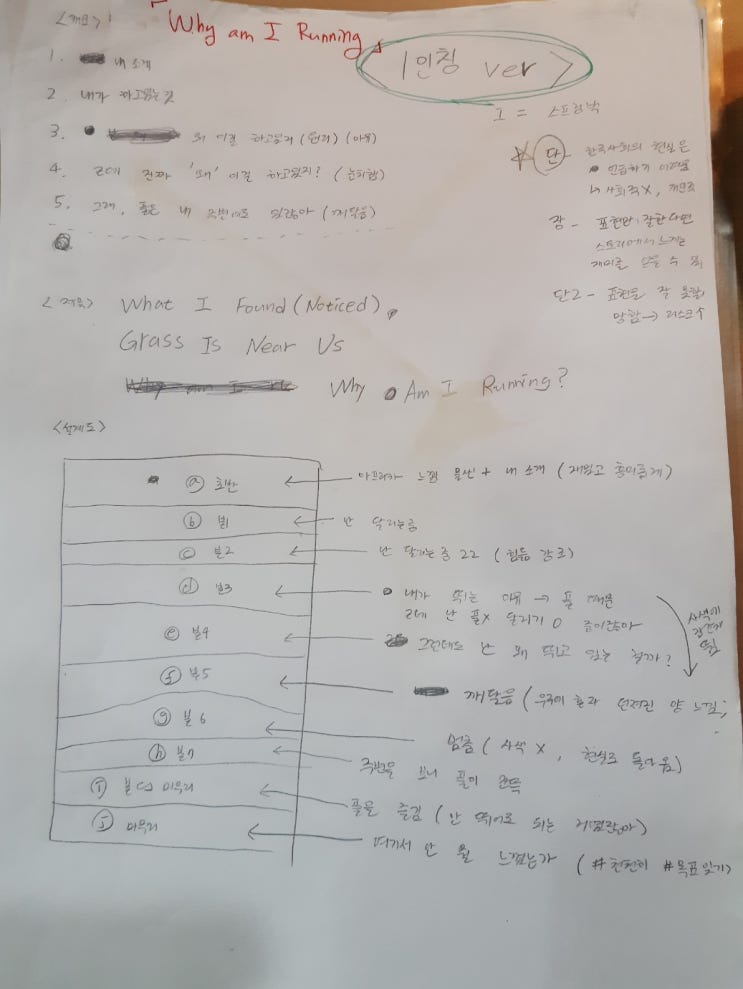 <개요>
「Why am I Running」
<1인칭 ver>
I = 스프링벅
1. 내 소개
2. 내가 하고있는 것
3. 왜 이걸 하고있지 (원리) (이유)
4. 근데 진짜 '왜' 이걸 하고있지? (눈치챔)
5. 그래, 풀은 내 주변에도 있잖아 (깨달음)
단 - 한국사회의 현실은
언급하기 어려움
↳ 사회적X, 개인적
장 - 표현만 잘한다면
스토리에서 느끼는
재미를 수
단2 - 표현을 잘 못할
망함 → 리스크↑
<제목> What I Found (Noticed),
Grass Is Near Us
Why Am I Running?
<설계도>
ⓐ 초반 ← 아프리카 느낌 물씬 + 내 소개 (재밌고 흥미롭게)
ⓑ 본1 ← 난 달리는중
ⓒ 본2 ← 난 달리는중 22 (힘듦 강조)
ⓓ 본3 ← 내가 뛰는 이유 → 풀 때문
근데 난 풀X 달리기 O 중이잖아
ⓔ 본4 ← 그런데도 난 왜 뛰고 있는 걸까?
사색에 잠긴채 뜀
ⓕ 본5 ← 깨달음 (우주에 홀라 던져진 양 느낌;
ⓖ 본6 ← 멈춤 (사색 X, 현실로 돌아옴)
ⓗ 본7 ← 주변을 보니 풀이 잔뜩
ⓘ 본 마무리 ← 풀을 즐김 (안 뛰어도 되는 거였잖아)
ⓙ 마무리 ← 여기서 난 뭘 느꼈는가 (#천천히 #목표잊기)